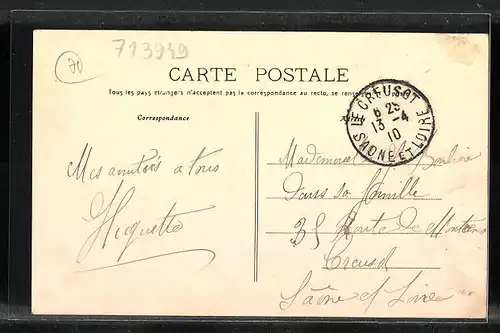 70
713949
CARTE POSTALE
Tous les pays étrangers n'acceptent pas la correspondance au recto, se
Correspondance
LE CREUSOT
6 25
13 - 4
10
SAONE ET LOIRE
Mes amitiés a tous
Huguette
Dans sa famille
35 Route de
Creusot
Saône et Loire